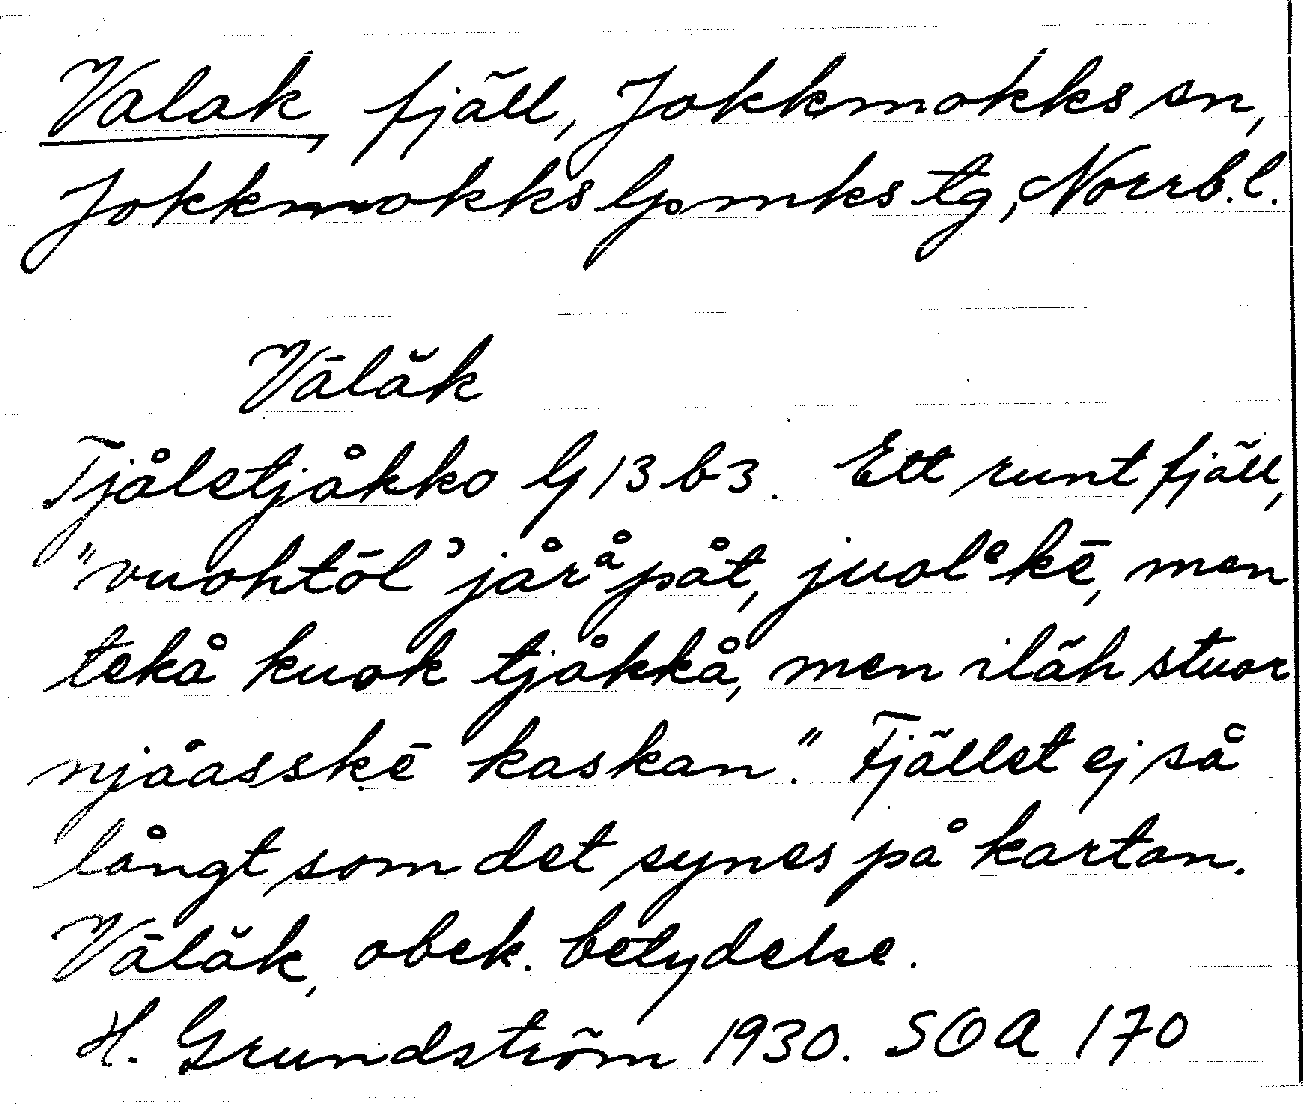 Valak, fjäll, Jokkmokks sn,
Jokkmokks lpmks tg, Norrb.l.
Vālăk
Tjåletjåkko lg 13 b 3. Ett runt fjäll,
"vuohtōl' jåråpåt, juolekē, men
tekå kuok tjåkkå, men ilāh stuor
njåasskē kaskan." Fjället ej så
långt som det synes på kartan.
Vālăk, obek. betydelse.
H. Grundström 1930. SOA 170